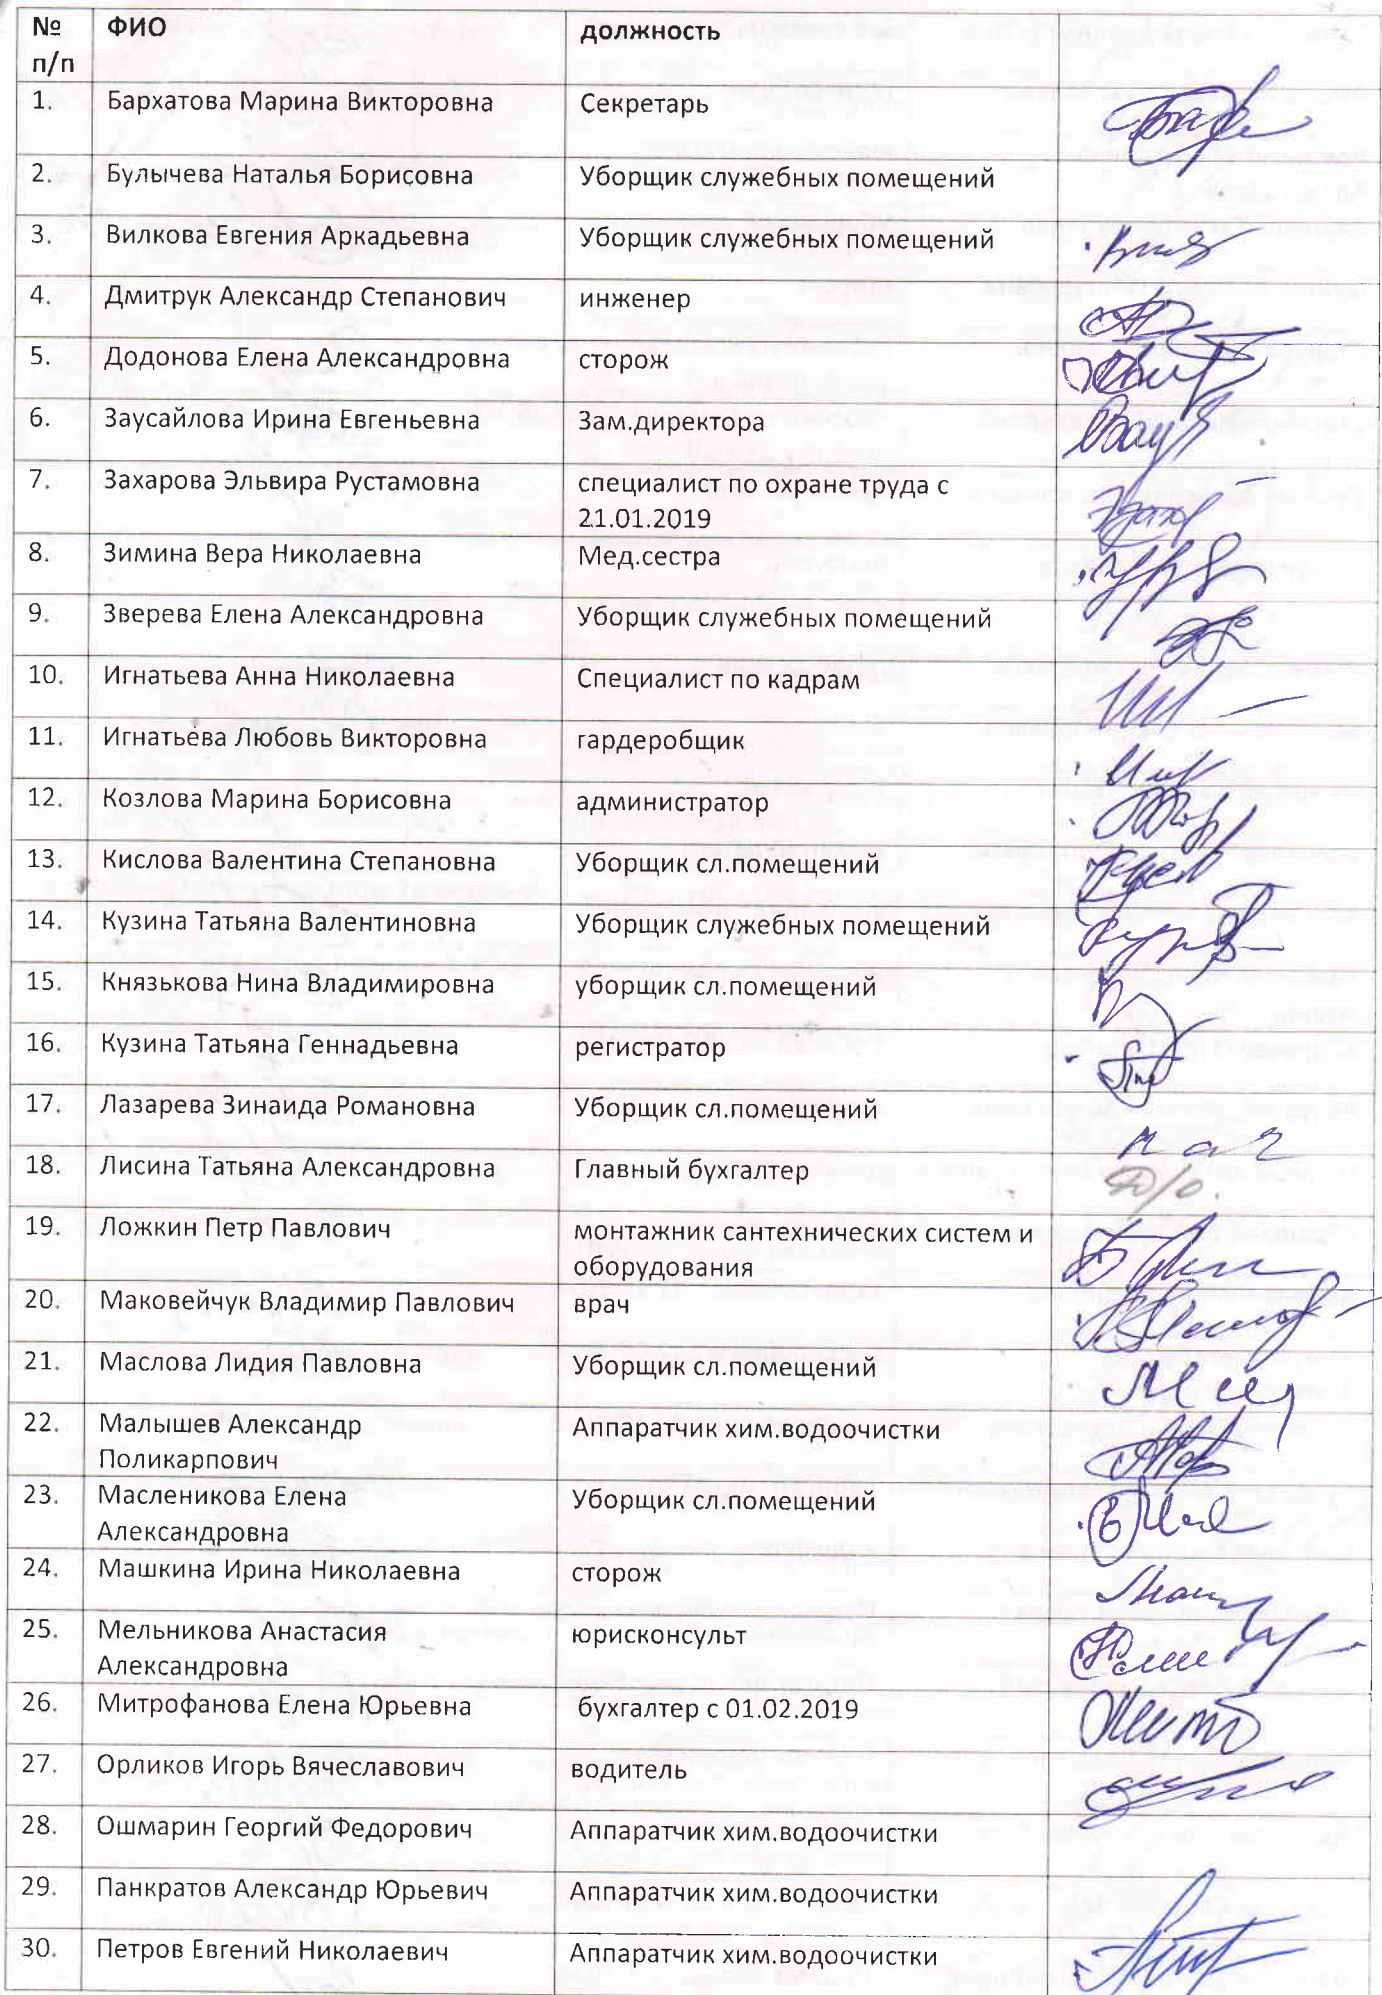 № п/п ФИО должность
1. Бархатова Марина Викторовна Секретарь
2. Булычева Наталья Борисовна Уборщик служебных помещений
3. Вилкова Евгения Аркадьевна Уборщик служебных помещений
4. Дмитрук Александр Степанович инженер
5. Додонова Елена Александровна сторож
6. Заусайлова Ирина Евгеньевна Зам.директора
7. Захарова Эльвира Рустамовна специалист по охране труда с
21.01.2019
8. Зимина Вера Николаевна Мед.сестра
9. Зверева Елена Александровна Уборщик служебных помещений
10. Игнатьева Анна Николаевна Специалист по кадрам
11. Игнатьева Любовь Викторовна гардеробщик
12. Козлова Марина Борисовна администратор
13. Кислова Валентина Степановна Уборщик сл.помещений
14. Кузина Татьяна Валентиновна Уборщик служебных помещений
15. Князькова Нина Владимировна уборщик сл.помещений
16. Кузина Татьяна Геннадьевна регистратор
17. Лазарева Зинаида Романовна Уборщик сл.помещений
18. Лисина Татьяна Александровна Главный бухгалтер
19. Ложкин Петр Павлович монтажник сантехнических систем и
оборудования
20. Маковейчук Владимир Павлович врач
21. Маслова Лидия Павловна Уборщик сл.помещений
22. Малышев Александр Аппаратчик хим.водоочистки
Поликарпович
23. Масленикова Елена Уборщик сл.помещений
Александровна
24. Машкина Ирина Николаевна сторож
25. Мельникова Анастасия юрисконсульт
Александровна
26. Митрофанова Елена Юрьевна бухгалтер с 01.02.2019
27. Орликов Игорь Вячеславович водитель
28. Ошмарин Георгий Федорович Аппаратчик хим.водоочистки
29. Панкратов Александр Юрьевич Аппаратчик хим.водоочистки
30. Петров Евгений Николаевич Аппаратчик хим.водоочистки